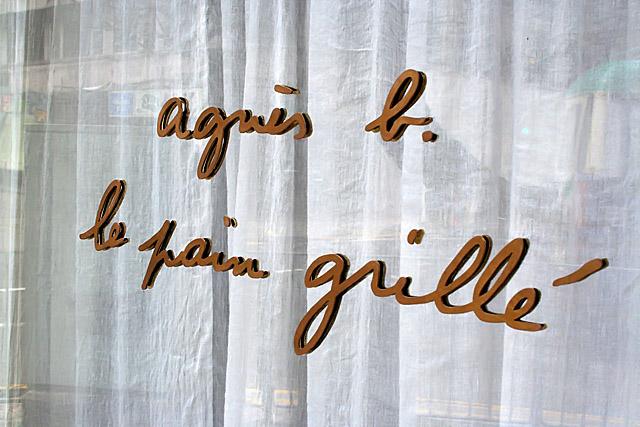 agnès b.
le pain grillé